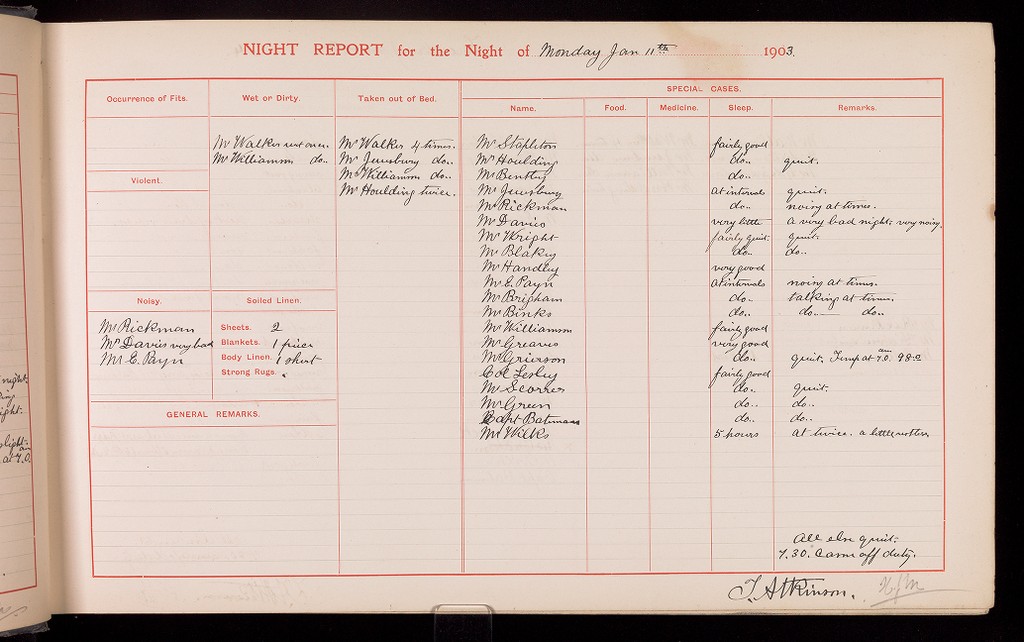 NIGHT REPORT for the Night of Monday Jan 11th 1903.
Occurrence of Fits.
Wet or Dirty.
Taken out of Bed.
SPECIAL CASES.
Name. Food. Medicine. Sleep. Remarks.
Mr Walker wet once.
Mr Williamson do..
Mr Walker 4 times.
Mr Jewsbury do..
Mr Williamson do..
Mr Houlding twice.
Violent.
Noisy.
Mr Rickman
Mr Davies very bad
Mr E. Payn
Soiled Linen.
Sheets. 2
Blankets. 1 piece
Body Linen. 1 shirt
Strong Rugs.
GENERAL REMARKS.
Mr Stapleton fairly good
Mr Houlding do.. quiet.
Mr Bently do..
Mr Jewsbury at intervals quiet.
Mr Rickman do.. noisy at times.
Mr Davies very little a very bad night. very noisy.
Mr Wright fairly quiet quiet.
Mr Blakey do.. do..
Mr Handley very good
Mr E. Payn at intervals noisy at times.
Mr Brigham do.. talking at times.
Mr Binks do.. do.. do..
Mr Williamson fairly good
Mr Greaves very good
Mr Grierson do.. quiet. Temp at 7.0. am 98.2
Col Lesley fairly good
Mr Scorres do.. quiet.
Mr Green do.. do..
Capt Bateman do.. do..
Mr Wilks 5 hours at twice. a little restless.
All else quiet.
7.30. Came off duty.
T. Atkinson.